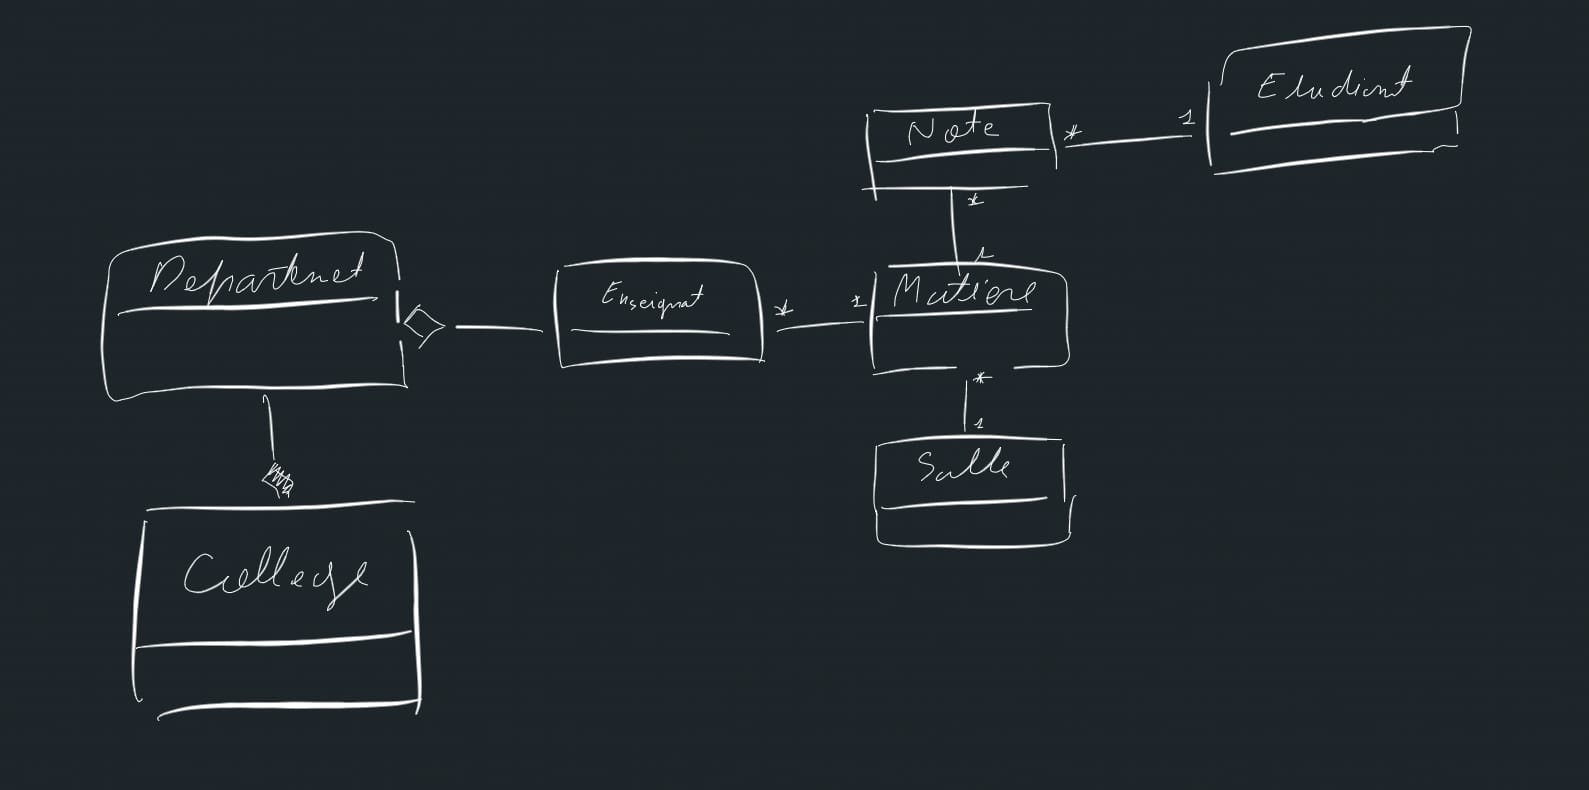 Etudiant
Note
* 1
*
1
Departemet
Enseignat
* 1
Matiere
*
1
Salle
College